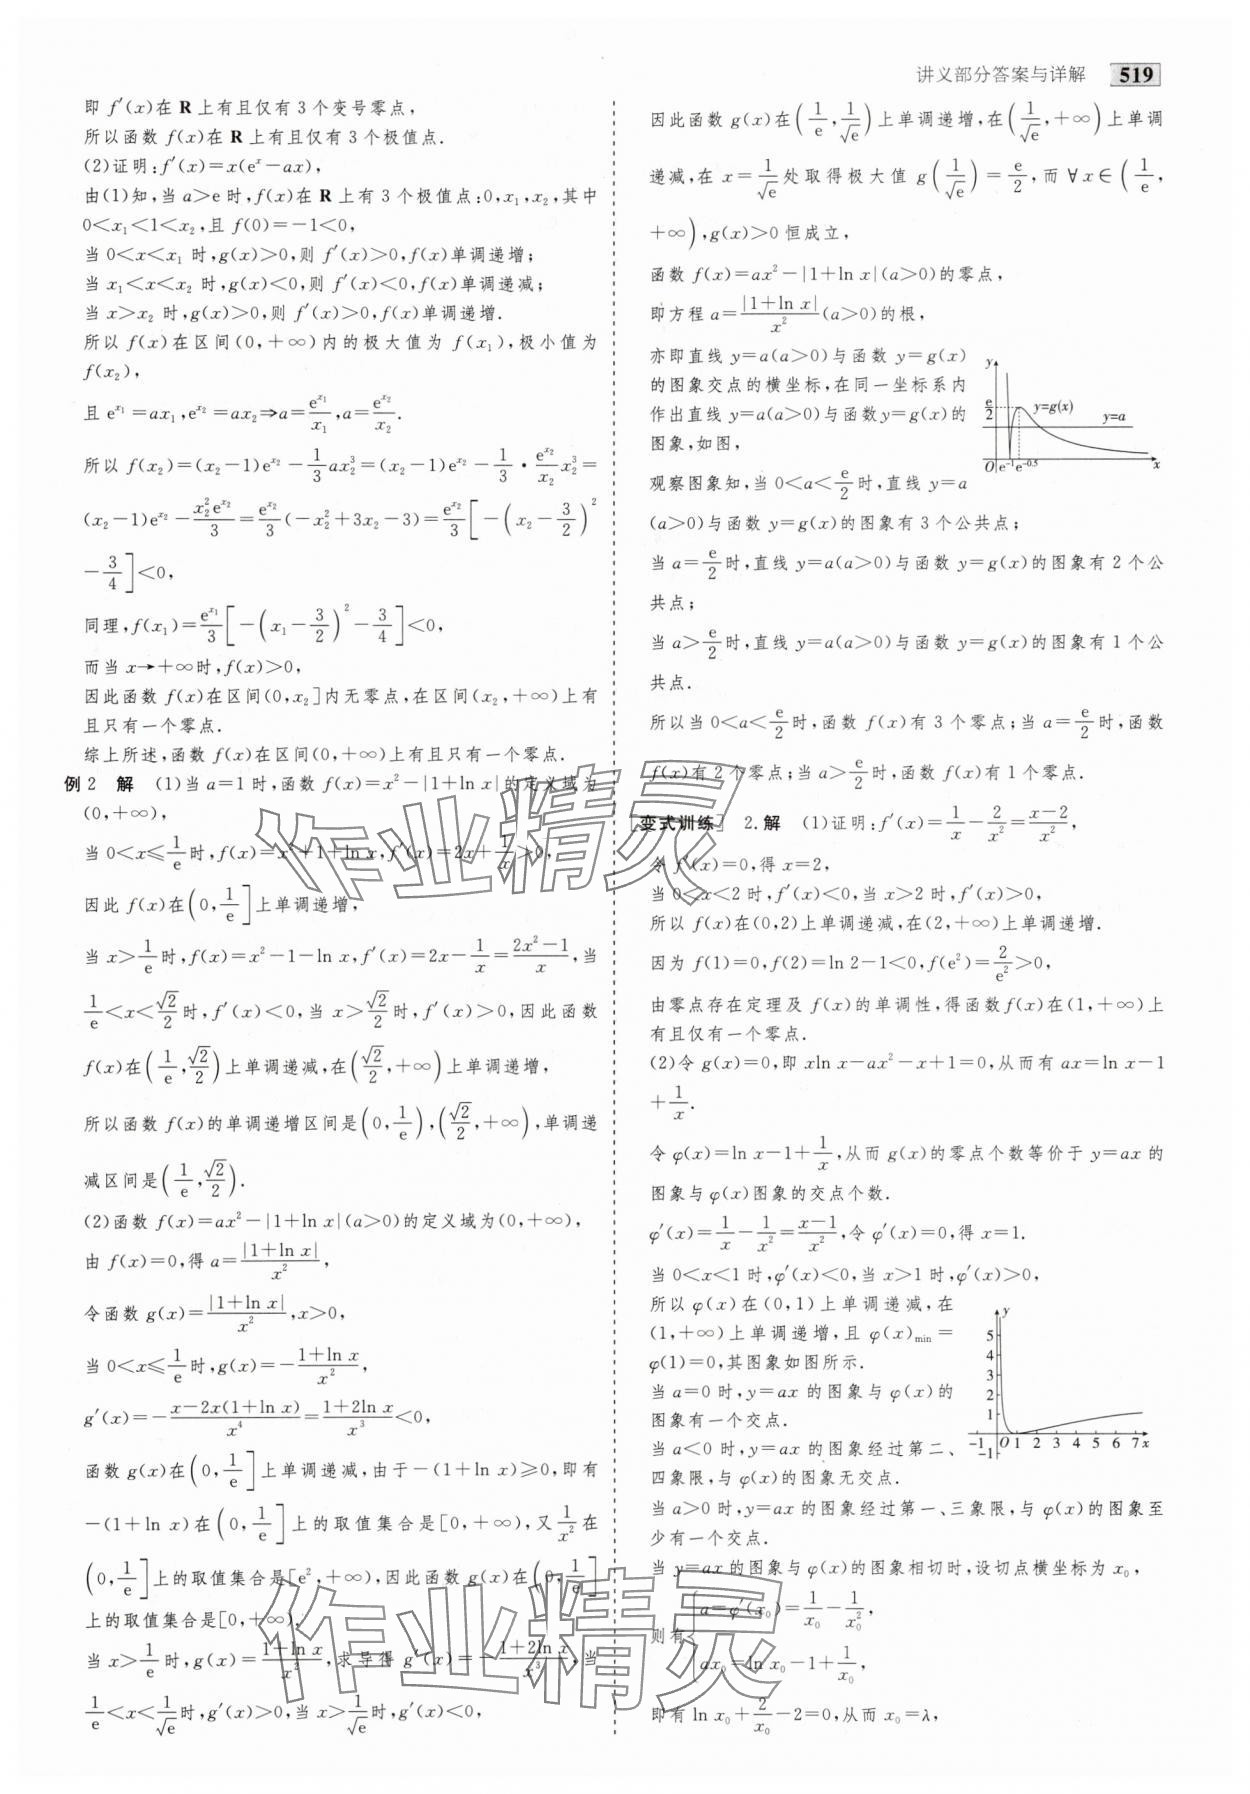 讲义部分答案与详解 519
即 f′(x)在 R 上有且仅有 3 个变号零点,
所以函数 f(x)在 R 上有且仅有 3 个极值点.
(2)证明:f′(x)=x(eˣ-ax),
由(1)知,当 a>e 时,f(x)在 R 上有 3 个极值点:0,x₁,x₂,其中
0<x₁<1<x₂,且 f(0)=-1<0,
当 0<x<x₁ 时,g(x)>0,则 f′(x)>0,f(x)单调递增;
当 x₁<x<x₂ 时,g(x)<0,则 f′(x)<0,f(x)单调递减;
当 x>x₂ 时,g(x)>0,则 f′(x)>0,f(x)单调递增.
所以 f(x)在区间(0,+∞)内的极大值为 f(x₁),极小值为
f(x₂),
且 e^{x₁}=ax₁,e^{x₂}=ax₂⇒a=e^{x₁}/x₁,a=e^{x₂}/x₂.
所以 f(x₂)=(x₂-1)e^{x₂}-1/3 ax₂³=(x₂-1)e^{x₂}-1/3·e^{x₂}/x₂ x₂³=
(x₂-1)e^{x₂}-x₂²e^{x₂}/3=e^{x₂}/3(-x₂²+3x₂-3)=e^{x₂}/3[-(x₂-3/2)²
-3/4]<0,
同理,f(x₁)=e^{x₁}/3[-(x₁-3/2)²-3/4]<0,
而当 x→+∞时,f(x)>0,
因此函数 f(x)在区间(0,x₂]内无零点,在区间(x₂,+∞)上有
且只有一个零点.
综上所述,函数 f(x)在区间(0,+∞)上有且只有一个零点.
例 2 解 (1)当 a=1 时,函数 f(x)=x²-|1+ln x|的定义域为
(0,+∞),
当 0<x≤1/e时,f(x)=x²+1+ln x,f′(x)=2x+1/x>0,
因此 f(x)在(0,1/e]上单调递增,
当 x>1/e时,f(x)=x²-1-ln x,f′(x)=2x-1/x=(2x²-1)/x,当
1/e<x<√2/2时,f′(x)<0,当 x>√2/2时,f′(x)>0,因此函数
f(x)在(1/e,√2/2)上单调递减,在(√2/2,+∞)上单调递增,
所以函数 f(x)的单调递增区间是(0,1/e),(√2/2,+∞),单调递
减区间是(1/e,√2/2).
(2)函数 f(x)=ax²-|1+ln x|(a>0)的定义域为(0,+∞),
由 f(x)=0,得 a=|1+ln x|/x²,
令函数 g(x)=|1+ln x|/x²,x>0,
当 0<x≤1/e时,g(x)=-(1+ln x)/x²,
g′(x)=-(x-2x(1+ln x))/x⁴=(1+2ln x)/x³<0,
函数 g(x)在(0,1/e]上单调递减,由于-(1+ln x)≥0,即有
-(1+ln x)在(0,1/e]上的取值集合是[0,+∞),又1/x²在
(0,1/e]上的取值集合是[e²,+∞),因此函数 g(x)在(0,1/e]
上的取值集合是[0,+∞),
当 x>1/e时,g(x)=(1+ln x)/x²,求导得 g′(x)=-(1+2ln x)/x³,当
1/e<x<1/√e时,g′(x)>0,当 x>1/√e时,g′(x)<0,
因此函数 g(x)在(1/e,1/√e)上单调递增,在(1/√e,+∞)上单调
递减,在 x=1/√e处取得极大值 g(1/√e)=e/2,而∀x∈(1/e,
+∞),g(x)>0 恒成立,
函数 f(x)=ax²-|1+ln x|(a>0)的零点,
即方程 a=|1+ln x|/x²(a>0)的根,
亦即直线 y=a(a>0)与函数 y=g(x)
的图象交点的横坐标,在同一坐标系内
作出直线 y=a(a>0)与函数y=g(x)的
图象,如图,
y
e/2
y=g(x)
y=a
O e⁻¹ e⁻⁰·⁵ x
观察图象知,当 0<a<e/2时,直线 y=a
(a>0)与函数 y=g(x)的图象有 3 个公共点;
当 a=e/2时,直线 y=a(a>0)与函数 y=g(x)的图象有 2 个公
共点;
当 a>e/2时,直线 y=a(a>0)与函数 y=g(x)的图象有 1 个公
共点.
所以当 0<a<e/2时,函数 f(x)有 3 个零点;当 a=e/2时,函数
f(x)有 2 个零点;当 a>e/2时,函数 f(x)有 1 个零点.
[变式训练] 2.解 (1)证明:f′(x)=1/x-2/x²=(x-2)/x²,
令 f′(x)=0,得 x=2,
当 0<x<2 时,f′(x)<0,当 x>2 时,f′(x)>0,
所以 f(x)在(0,2)上单调递减,在(2,+∞)上单调递增.
因为 f(1)=0,f(2)=ln 2-1<0,f(e²)=2/e²>0,
由零点存在定理及 f(x)的单调性,得函数f(x)在(1,+∞)上
有且仅有一个零点.
(2)令 g(x)=0,即 xln x-ax²-x+1=0,从而有 ax=ln x-1
+1/x.
令 φ(x)=ln x-1+1/x,从而 g(x)的零点个数等价于 y=ax 的
图象与 φ(x)图象的交点个数.
φ′(x)=1/x-1/x²=(x-1)/x²,令 φ′(x)=0,得 x=1.
当 0<x<1 时,φ′(x)<0,当 x>1 时,φ′(x)>0,
所以 φ(x)在(0,1)上单调递减,在
(1,+∞)上单调递增,且 φ(x)min=
φ(1)=0,其图象如图所示.
当 a=0 时,y=ax 的图象与 φ(x)的
图象有一个交点.
y
5
4
3
2
1
-1 O 1 2 3 4 5 6 7 x
-1
当 a<0 时,y=ax 的图象经过第二、
四象限,与 φ(x)的图象无交点.
当 a>0 时,y=ax 的图象经过第一、三象限,与 φ(x)的图象至
少有一个交点.
当 y=ax 的图象与 φ(x)的图象相切时,设切点横坐标为 x₀,
则有{a=φ′(x₀)=1/x₀-1/x₀²,
ax₀=ln x₀-1+1/x₀,
即有 ln x₀+2/x₀-2=0,从而 x₀=λ,
作业精灵
作业精灵